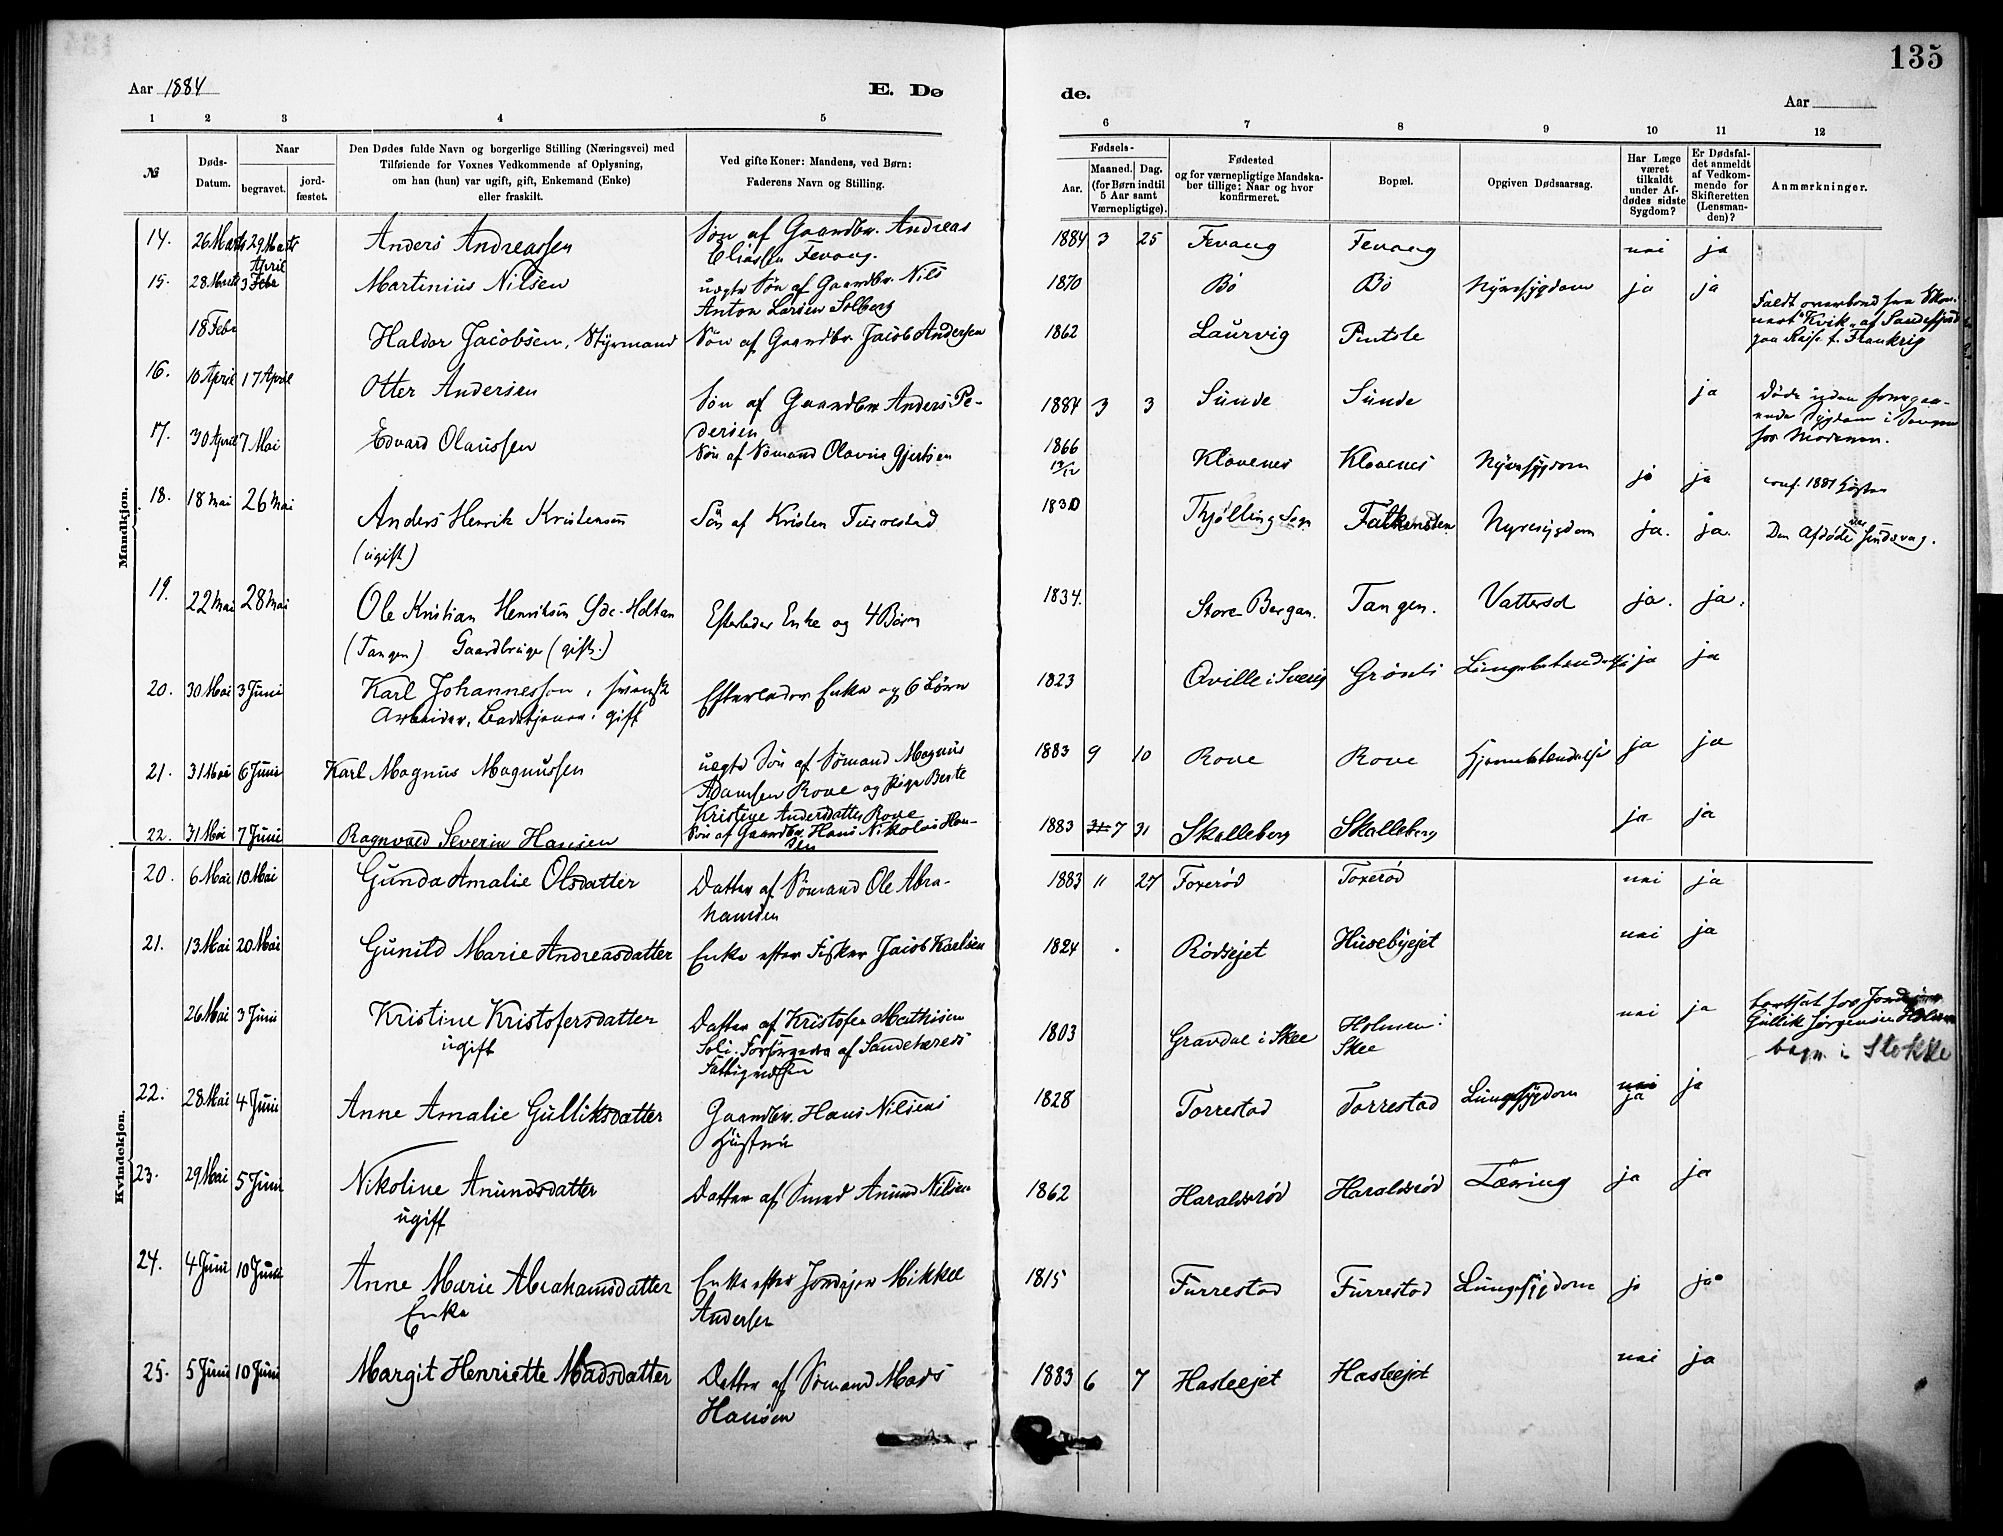 135
Aar 1884
E. Dø
de.
Aar
1 2 3 4 5 6 7 8 9 10 11 12
№
Døds-
Datum.
Naar
begravet.
jord-
fæstet.
Den Dødes fulde Navn og borgerlige Stilling (Næringsvei) med
Tilføiende for Voxnes Vedkommende af Oplysning,
om han (hun) var ugift, gift, Enkemand (Enke)
eller fraskilt.
Ved gifte Koner: Mandens, ved Børn:
Faderens Navn og Stilling.
Fødsels-
Aar.
Maaned. Dag.
(for Børn indtil
5 Aar samt
Værnepligtige).
Fødested
og for værnepligtige Mandska-
ber tillige: Naar og hvor
konfirmeret.
Bopæl.
Opgiven Dødsaarsag.
Har Læge
været
tilkaldt
under Af-
dødes sidste
Sygdom?
Er Dødsfal-
det anmeldt
af Vedkom-
mende for
Skifteretten
(Lensman-
den)?
Anmærkninger.
Mandkjøn.
14. 26 Marts 29 Marts Anders Andreassen Søn af Gaardbr. Andreas 1884 3 25 Fevang Fevang nei ja
Eliassen Fevang.
April
15. 28 Marts 3 Febr Martinius Nilsen uægte Søn af Gaardbr. Nils 1870 Bø Bø Nyresygdom ja ja
Anton Larsen Solberg
18 Febr Haldor Jacobsen, Styrmand Søn af Gaardbr. Jacob Andersen 1862 Laurvig Pintsle Faldt overbord fra Skon-
nert "Kvik" af Sandefjord
paa Reise t. Frankrig
16. 10 April 17 April Otter Andersen Søn af Gaardbr Anders Pe- 1884 3 3 Sunde Sunde ja Døde uden foregaa-
dersen
ende Sygdom i Sengen
hos Moderen.
17. 30 April 7 Mai Edvard Olaussen Søn af Sømand Olavus Gjertsen 1866 Klavenes Klavenes Nyresygdom ja ja conf. 1881 Høsten
18. 18 Mai 26 Mai Anders Henrik Kristensen Søn af Kristen Furrestad 1830 Thjølling Sogn Falkensten Nyresygdom ja. ja. Den Afdøde var Sindsvag.
(ugift)
19. 22 Mai 28 Mai Ole Kristian Henriksen Holtan Efterlader Enke og 4 Børn 1834. Store Bergan. Tangen. Vattersot ja. ja.
(Tangen) Gaardbruger (gift.)
20. 30 Mai 3 Juni Karl Johannesson, svensk Efterlader Enke og 6 Børn 1823 Qville i Sverig Grønli Lungebetændelse ja ja
Arbeider, Badetjener, gift
21. 31 Mai 6 Juni Karl Magnus Magnussen uægte Søn af Sømand Magnus 1883 9 10 Rove Rove Hjernebetændelse ja ja
Adamsen Rove og Pige Berte
Kristine Andersdatter Rove
22. 31 Mai 7 Juni Ragnvald Severin Hansen Søn af Gaardbr. Hans Nikolai Han- 1883 7 31 Skalleberg Skalleberg ja ja
sen
Kvindekjøn.
20. 6 Mai 10 Mai Gunda Amalie Olsdatter Datter af Sømand Ole Abra- 1883 11 27 Foxerød Foxerød nei ja
hamsen
21. 13 Mai 20 Mai Gunild Marie Andreasdatter Enke efter Fisker Jacob Karlsen 1824 Rødsejet Husebyejet nei ja
26 Mai 3 Juni Kristine Kristofersdatter Datter af Kristofer Mathisen 1803 Gravdal i Skee Holmen i nei ja bortsat hos
ugift Soli. Forsørgedes af Sandeherreds Skee Gullik Jørgensen Holmen
Fattigvæsen begr. i Stokke
22. 28 Mai 4 Juni Anne Amalie Gulliksdatter Gaardbr. Hans Nilsens 1828 Torrestad Torrestad Lungesygdom nei ja
Hustru ja
23. 29 Mai 5 Juni Nikoline Anundsdatter Datter af Smed Anund Nilsen 1862 Haraldsrød Haraldsrød Tæring ja ja
ugift
24. 4 Juni 10 Juni Anne Marie Abrahamsdatter Enke efter Jordejer Mikkel 1815 Furrestad Furrestad Lungesygdom ja ja
Enke Andersen
25. 5 Juni 10 Juni Margit Henriette Madsdatter Datter af Sømand Mads 1883 6 7 Hasleejet Hasleejet nei ja
Hansen